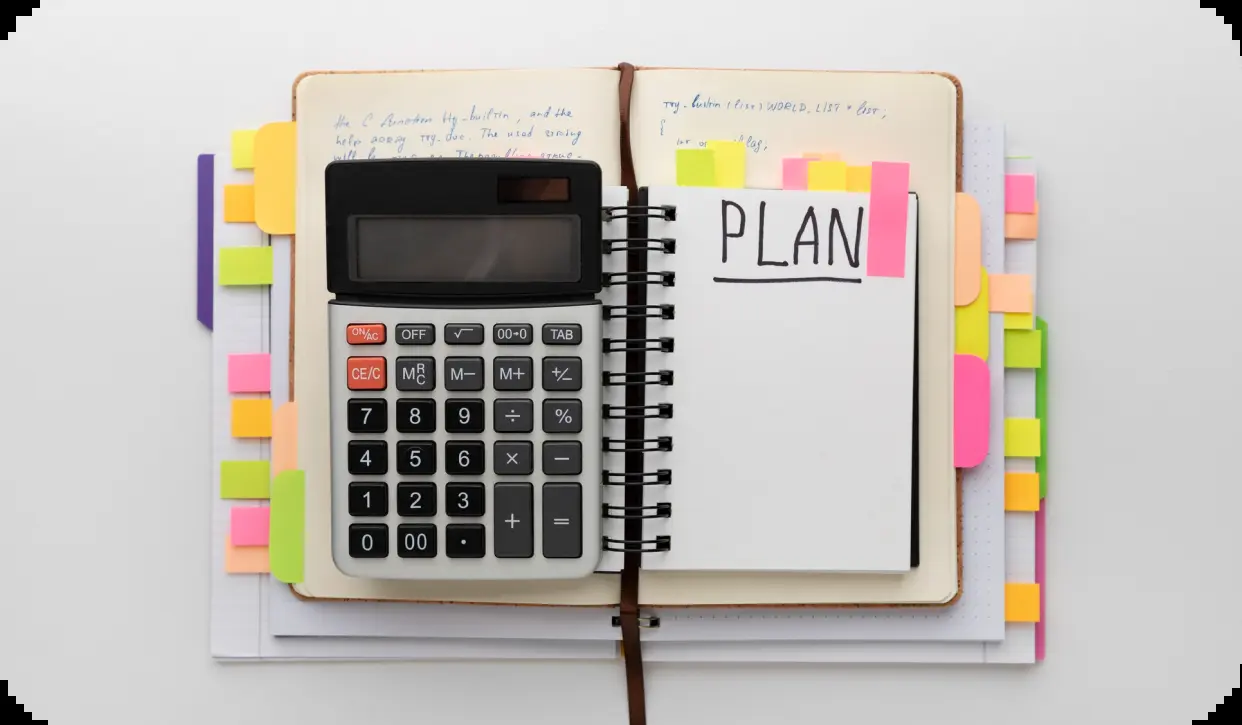 the C function try_builtin, and the
help
The used
will be
try_builtin (list) WORLD_LIST * list;
{
PLAN
ON/AC OFF √ 00→0 TAB
CE/C MRC M− M+ +/−
7 8 9 ÷ %
4 5 6 × −
1 2 3 + =
0 00 .